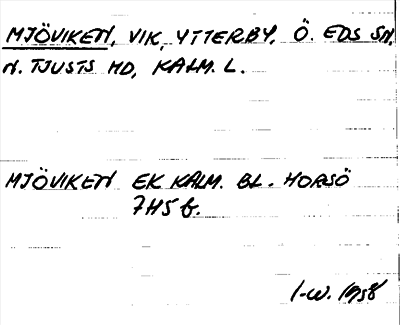 MJÖVIKEN, VIK, YTTERBY, Ö. EDS SN,
N. TJUSTS HD, KALM. L.
MJÖVIKEN EK KALM. BL. HORSÖ
7H5 f.
I-W. 1958